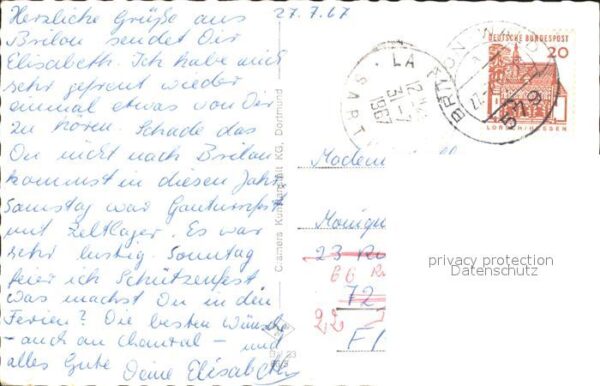 Herzliche Grüße aus
27.7.67
Brilon sendet Dir
Elisabeth. Ich habe mich
sehr gefreut wieder
einmal etwas von Dir
zu hören. Schade das
Du nicht nach Brilon
kommst in diesen Jahr.
Samstag war Gauturnfest
mit Zeltlager. Es war
sehr lustig. Sonntag
feier ich Schützenfest
Was machst Du in den
Ferien? Die besten Wünsche
- auch an Chantal - und
alles Gute Deine Elisabeth
Cramers Kunstanstalt KG, Dortmund
DEUTSCHE BUNDESPOST
20
LORSCH/HESSEN
BRILON
579
LA
31-7
1967
Monique
23
66
72
22
privacy protection
Datenschutz